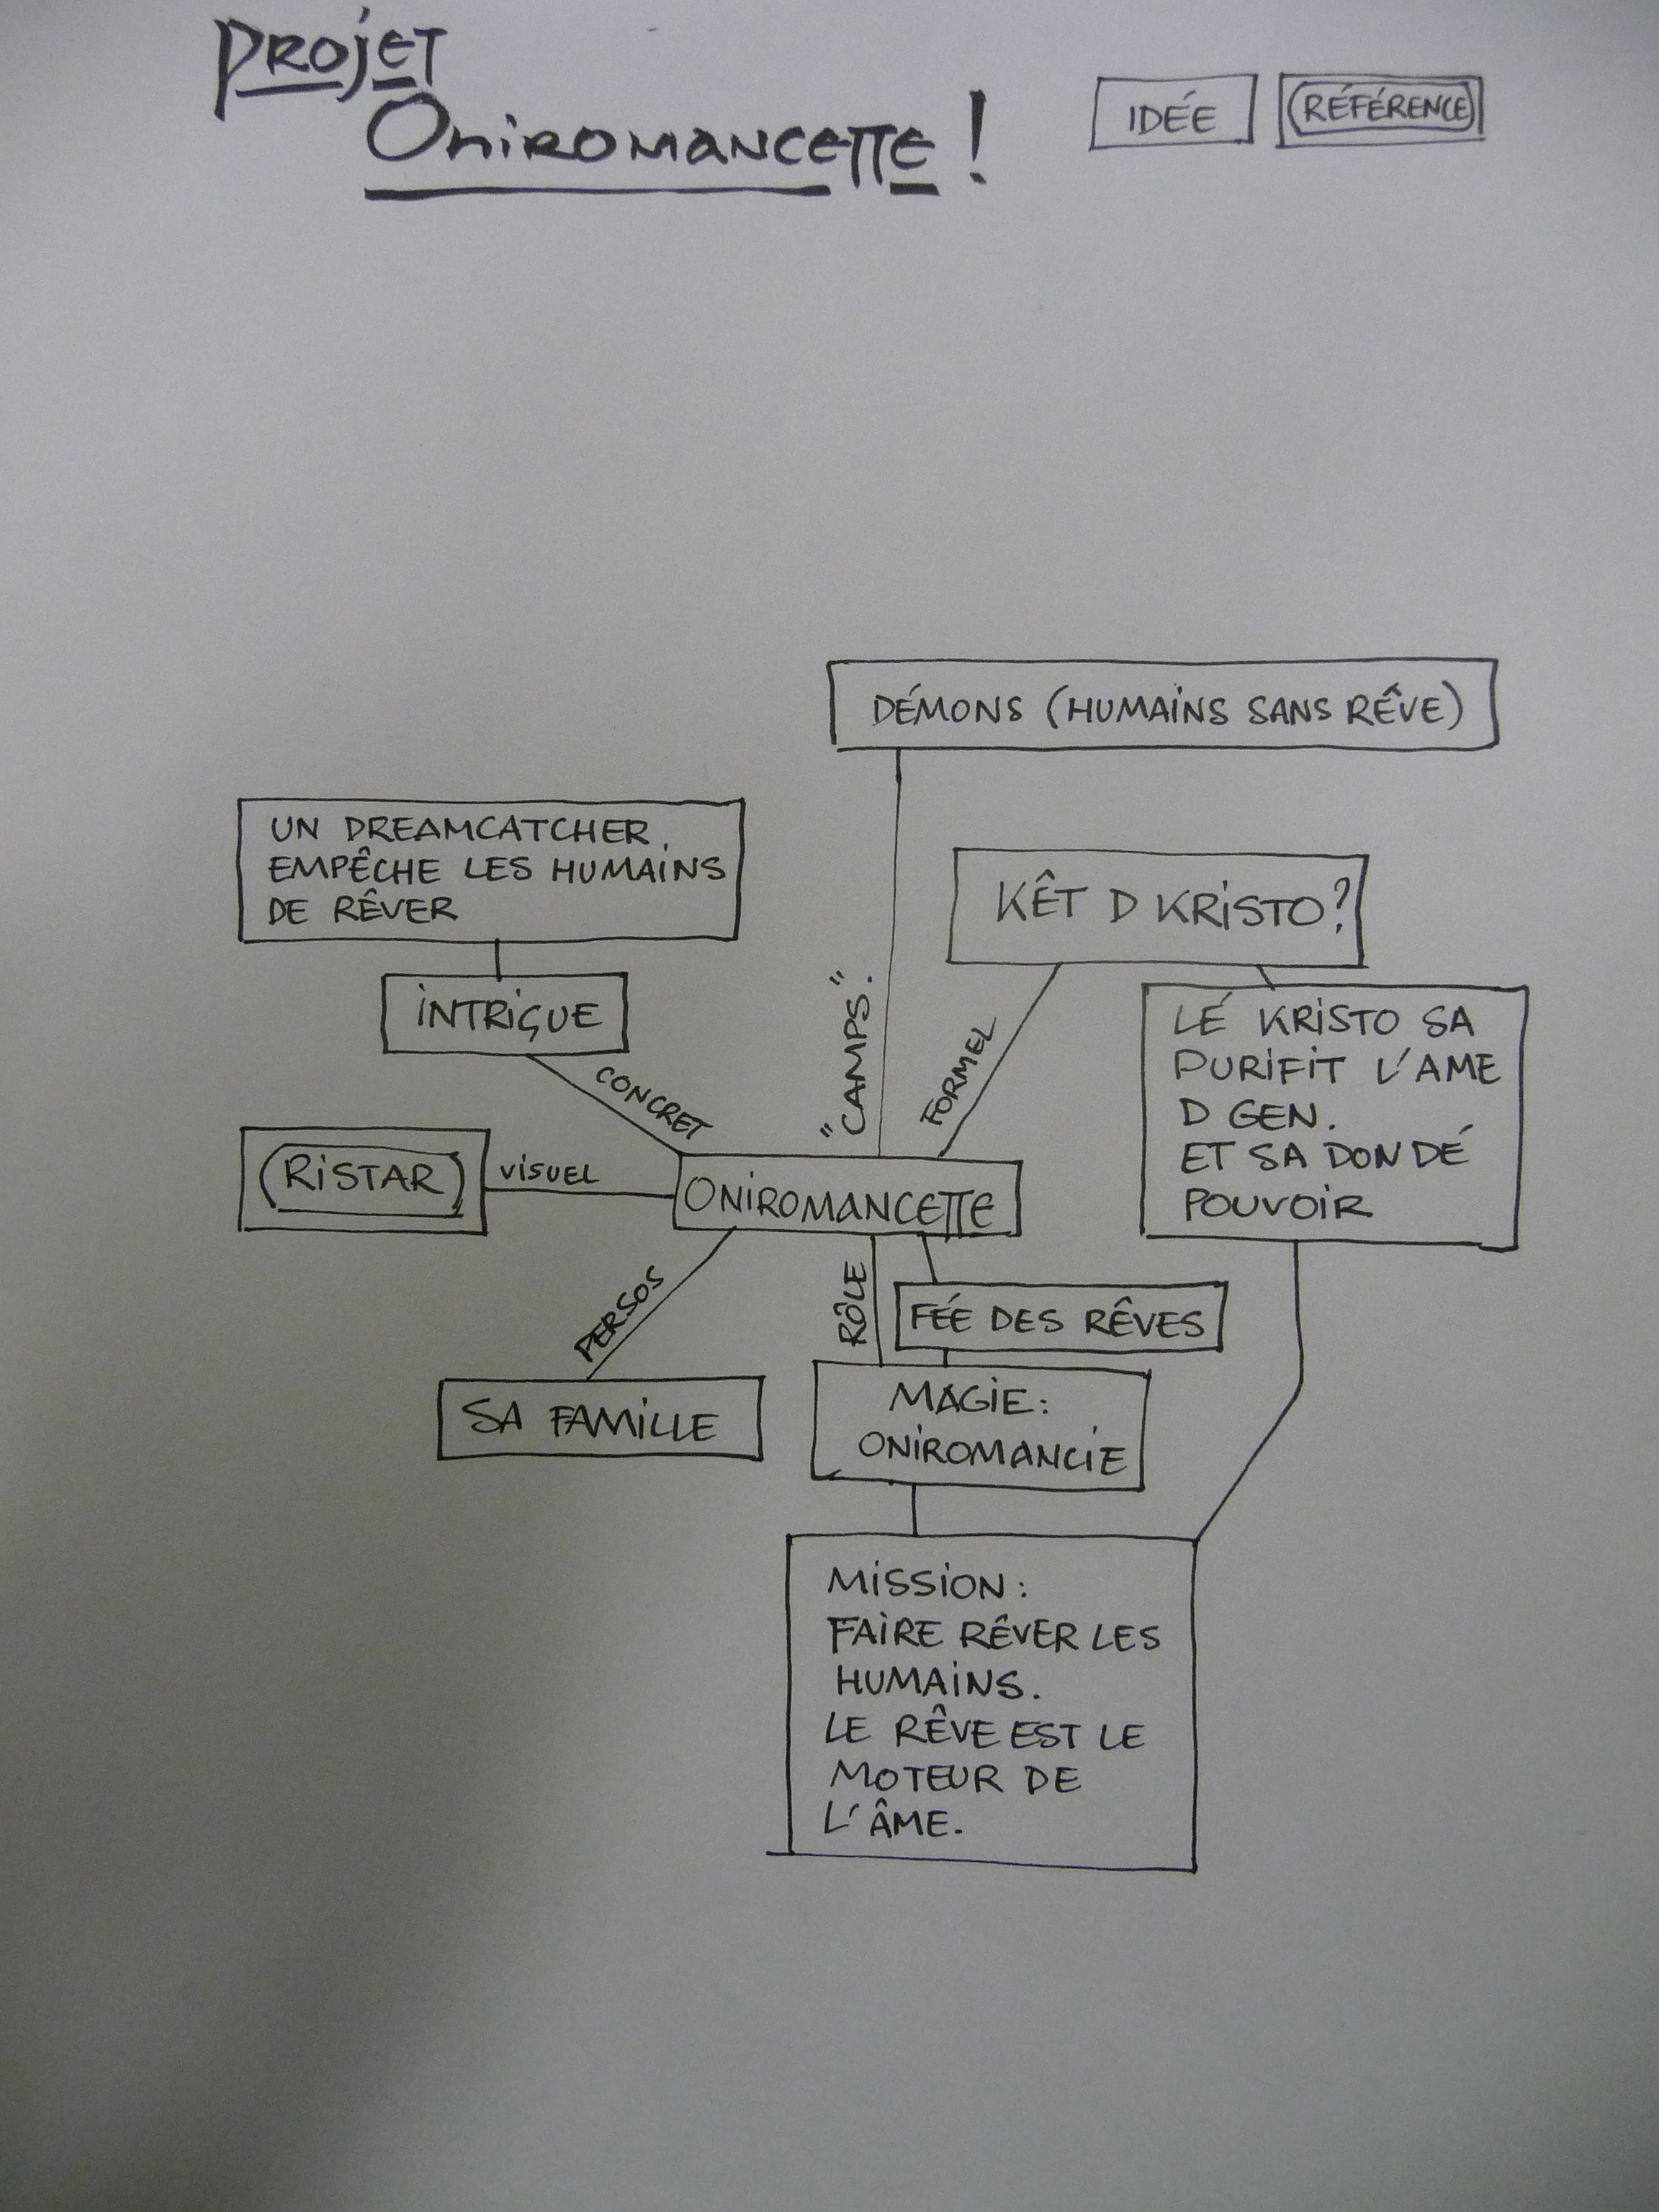 PROJET
ONIROMANCETTE !
IDÉE
(RÉFÉRENCE)
DÉMONS (HUMAINS SANS RÊVE)
UN DREAMCATCHER
EMPÊCHE LES HUMAINS
DE RÊVER
KÊT D KRISTO?
INTRIGUE
LÉ KRISTO SA
PURIFIT L'AME
D GEN.
ET SA DON DÉ
POUVOIR
CONCRET
"CAMPS".
FORMEL
(RISTAR)
VISUEL
ONIROMANCETTE
PERSOS
RÔLE
FÉE DES RÊVES
SA FAMILLE
MAGIE:
ONIROMANCIE
MISSION:
FAIRE RÊVER LES
HUMAINS.
LE RÊVE EST LE
MOTEUR DE
L'ÂME.